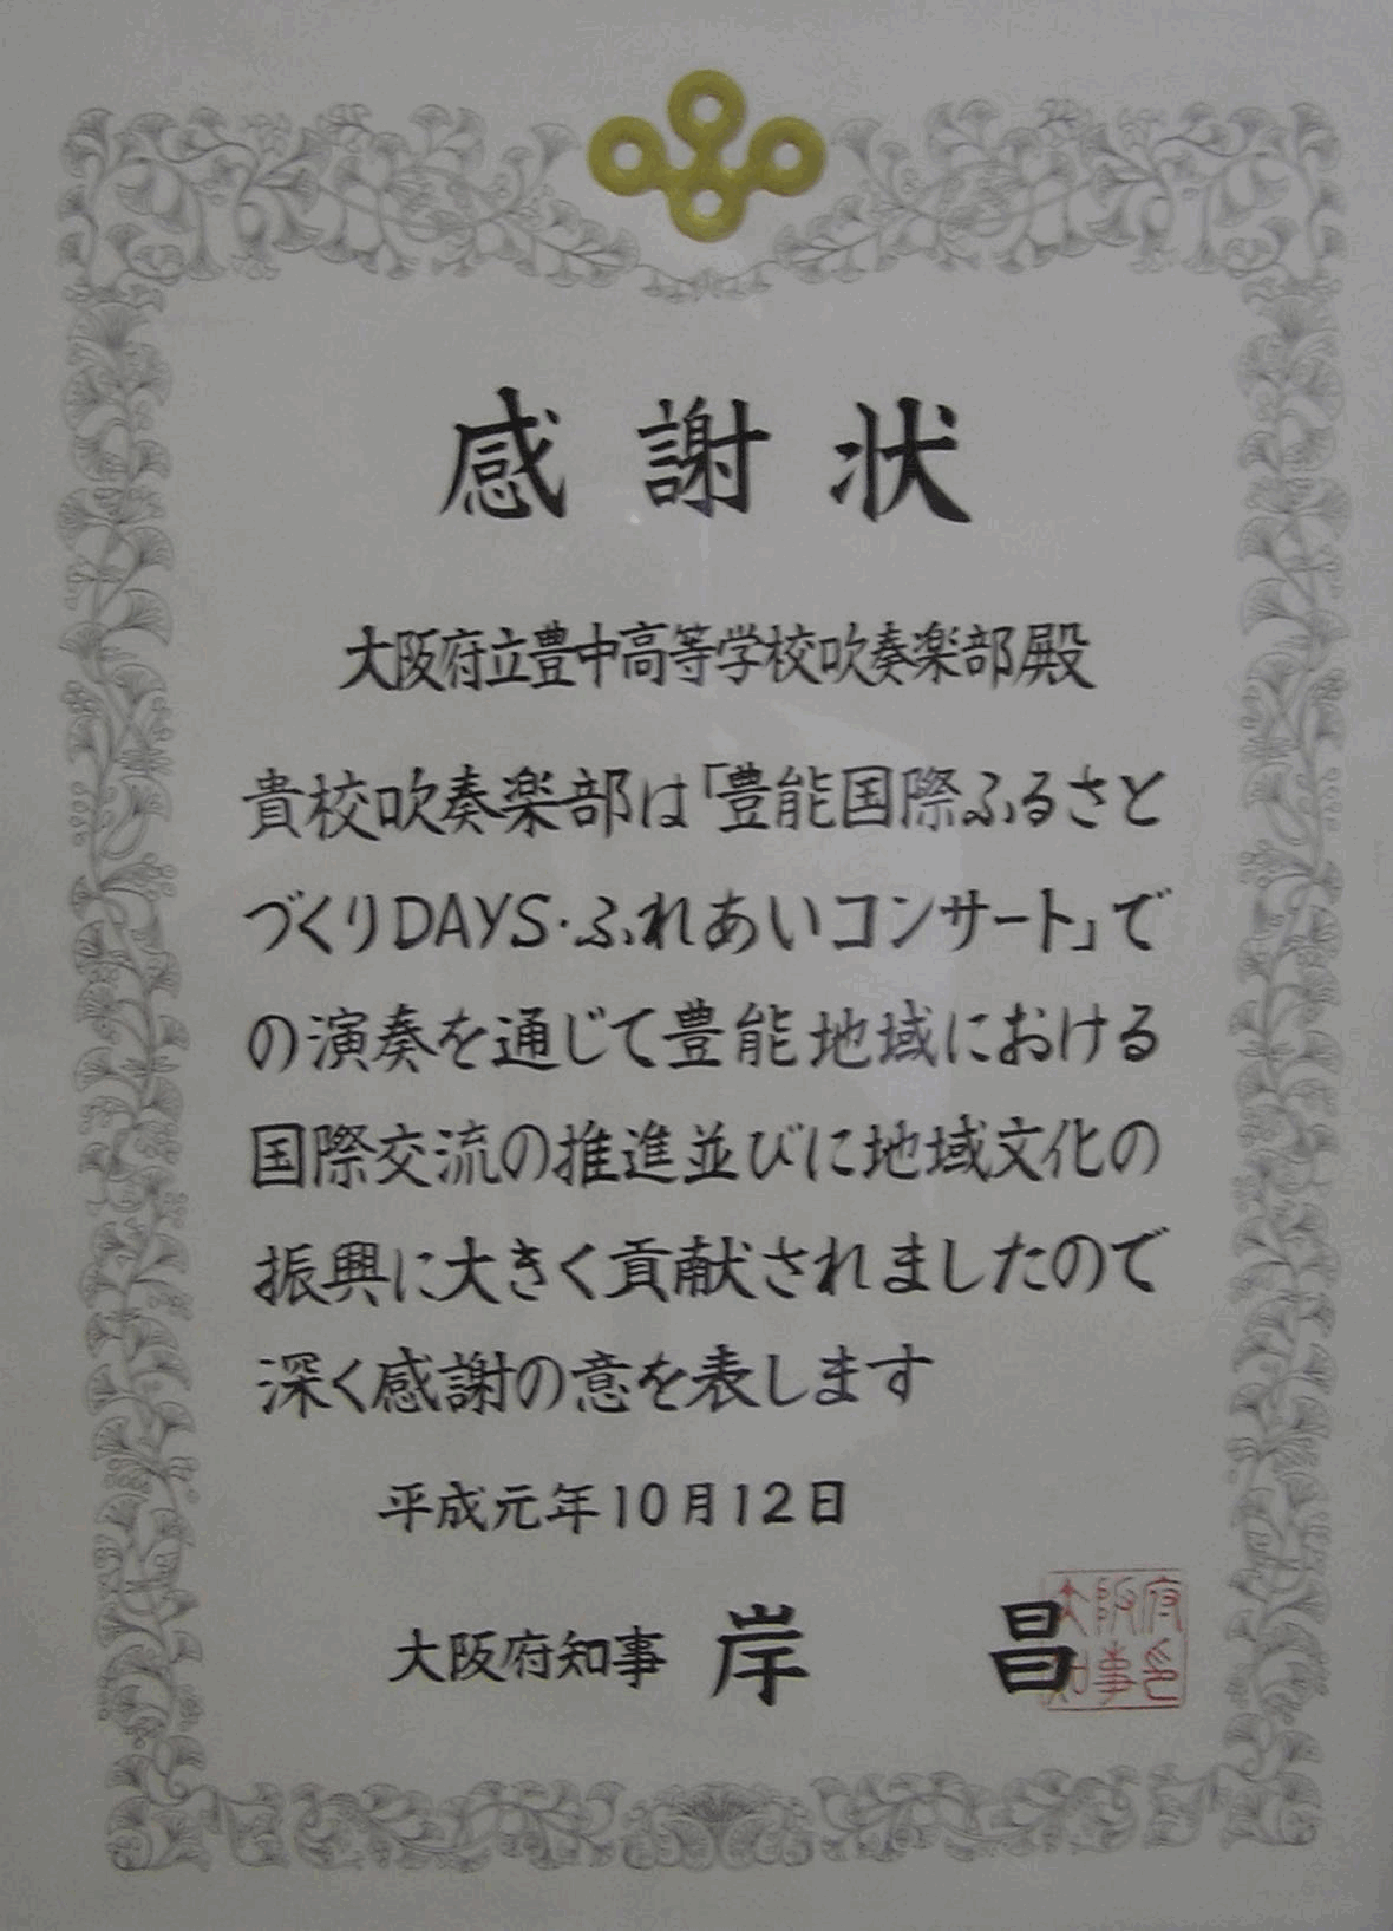 感謝状
大阪府立豊中高等学校吹奏楽部殿
貴校吹奏楽部は「豊能国際ふるさと
づくりDAYS・ふれあいコンサート」で
の演奏を通じて豊能地域における
国際交流の推進並びに地域文化の
振興に大きく貢献されましたので
深く感謝の意を表します
平成元年10月12日
大阪府知事 岸 昌
大阪府
知事印